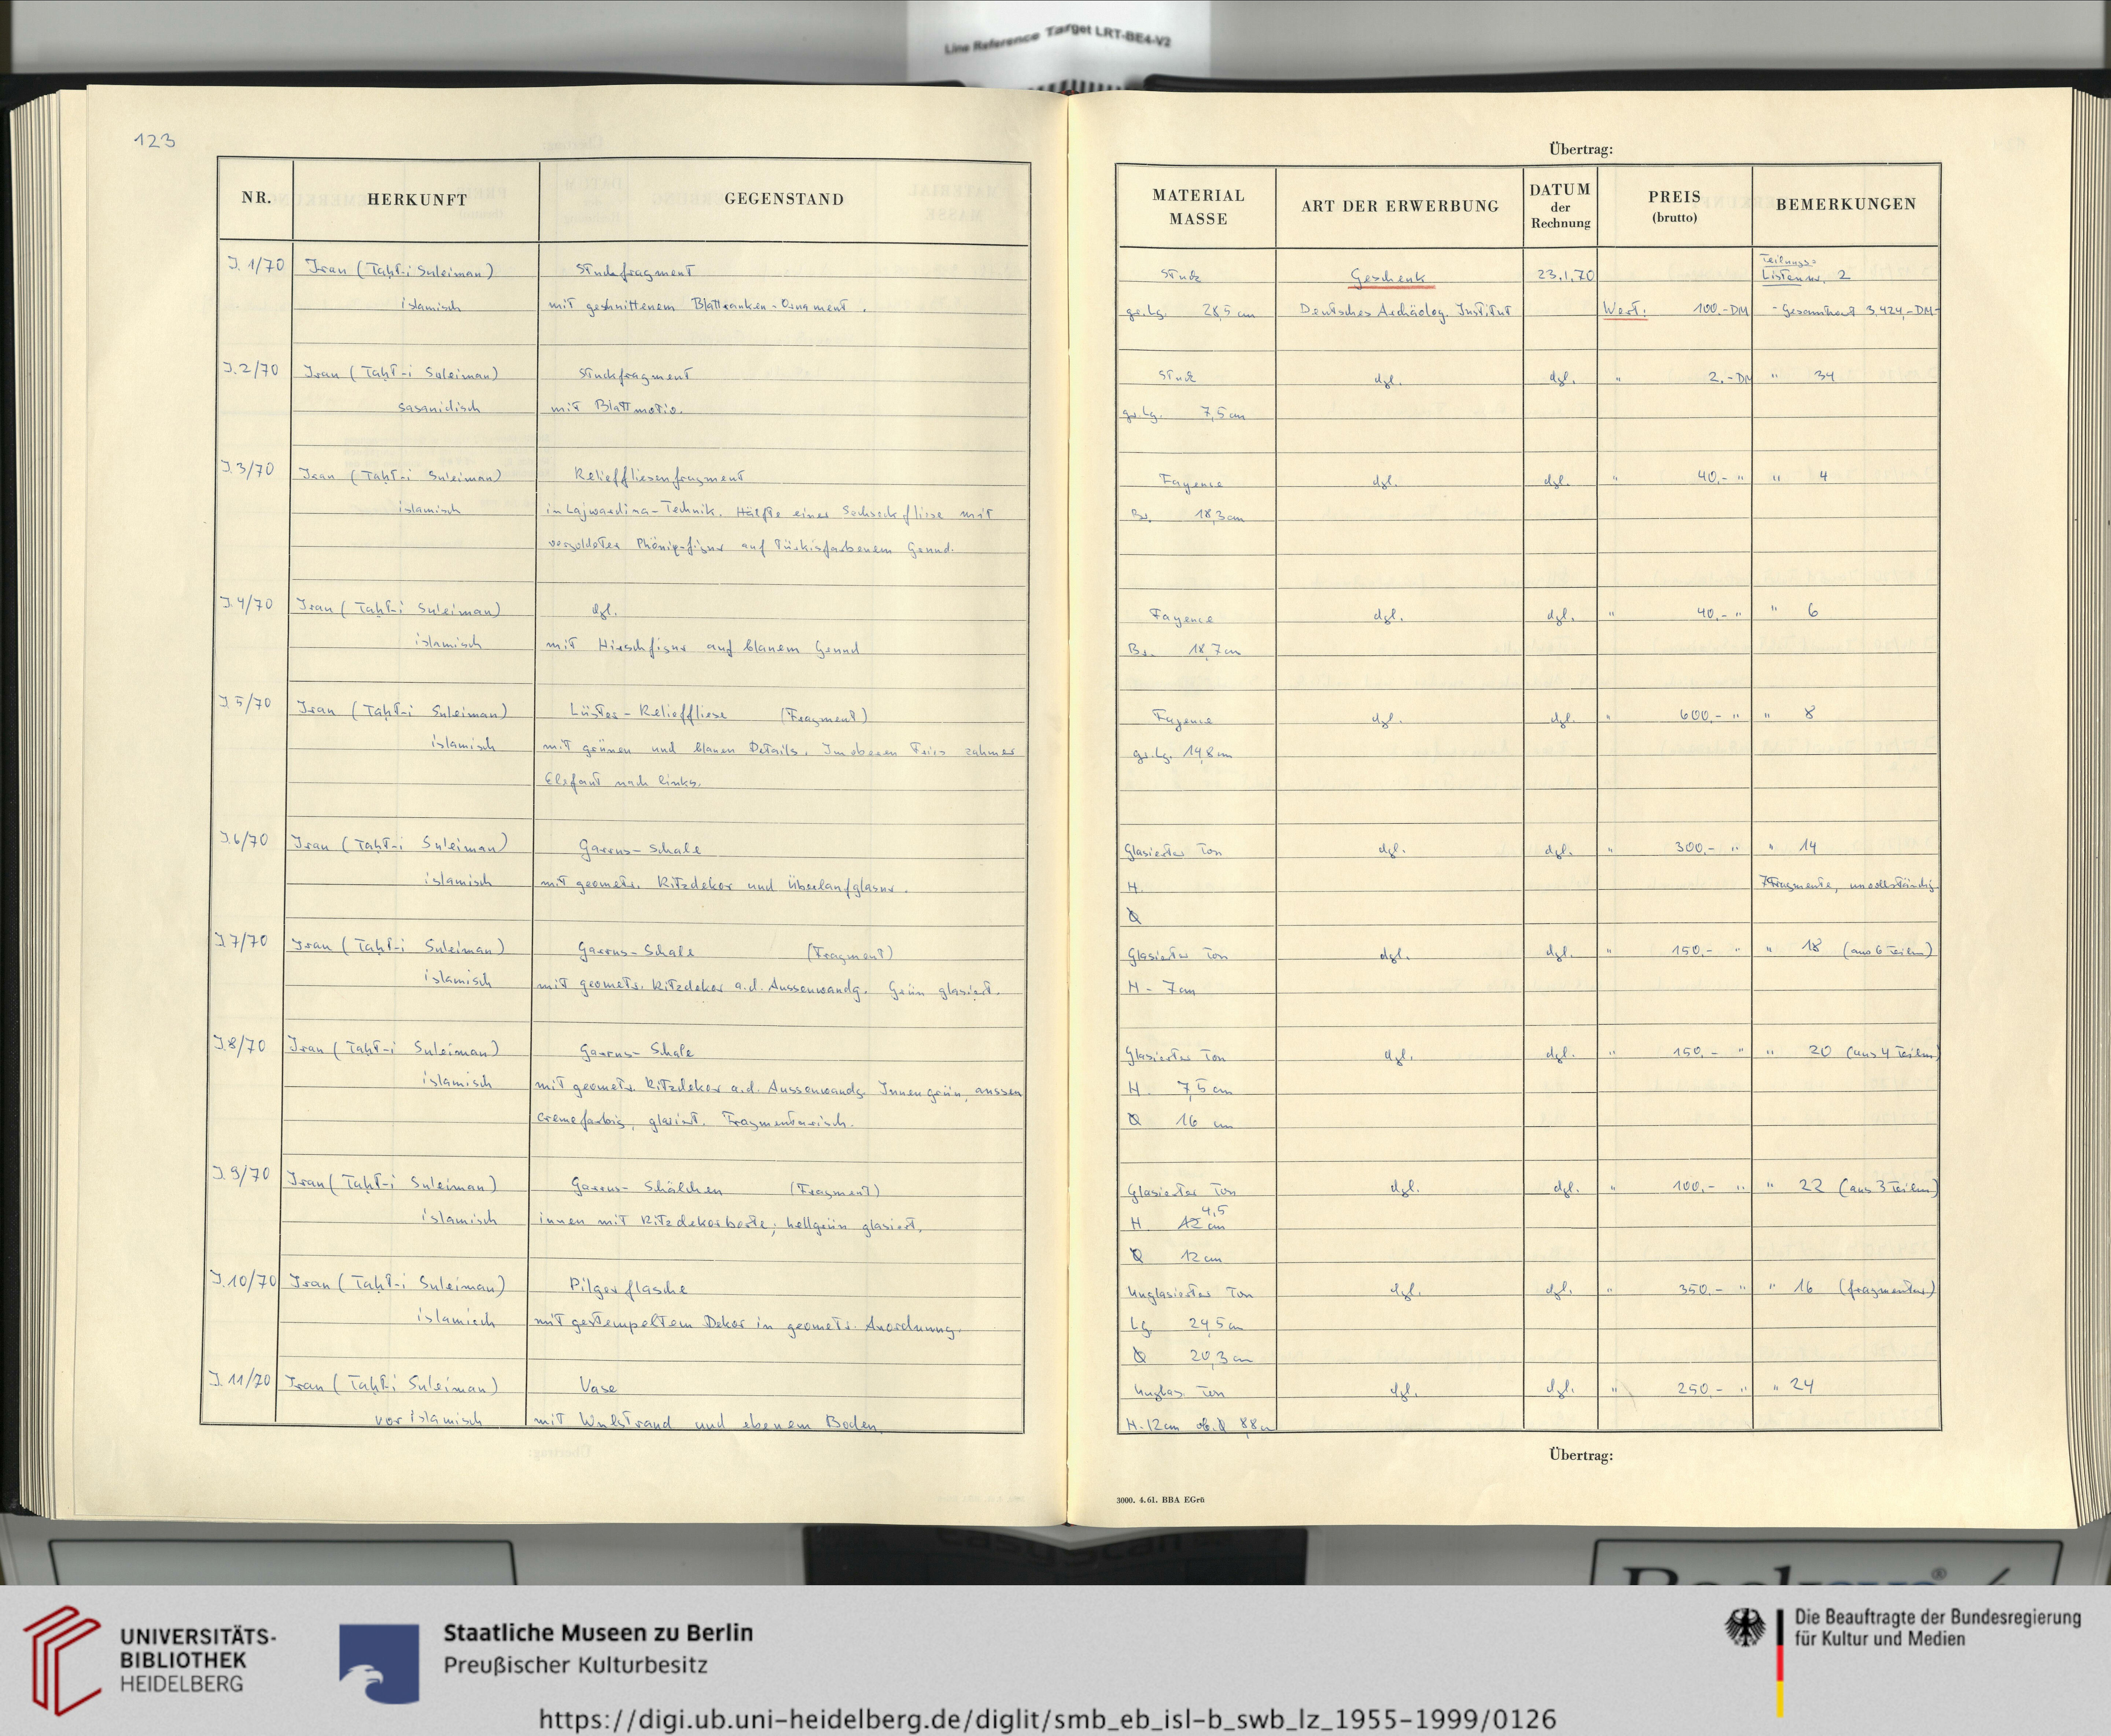 Line Reference Target LRT-BE4-V2
123
NR. HERKUNFT GEGENSTAND
J. 1/70 Iran (Taḫt-i Suleiman) Stuckfragment
islamisch mit geschnittenem Blattranken-Ornament.
J. 2/70 Iran (Taḫt-i Suleiman) Stuckfragment
sasanidisch mit Blattmotiv.
J. 3/70 Iran (Taḫt-i Suleiman) Relieffliesenfragment
islamisch in Lajwardina-Technik. Hälfte einer Sechseckfliese mit
vergoldeter Phönixfigur auf türkisfarbenem Grund.
J. 4/70 Iran (Taḫt-i Suleiman) dgl.
islamisch mit Hirschfigur auf blauem Grund
J. 5/70 Iran (Taḫt-i Suleiman) Lüster-Relieffliese (Fragment)
islamisch mit grünen und blauen Details. Im oberen Fries zahmer
Elefant nach links.
J. 6/70 Iran (Taḫt-i Suleiman) Garrus-Schale
islamisch mit geometr. Ritzdekor und Überlaufglasur.
J. 7/70 Iran (Taḫt-i Suleiman) Garrus-Schale (Fragment)
islamisch mit geometr. Ritzdekor a.d. Aussenwandg. Grün glasiert.
J. 8/70 Iran (Taḫt-i Suleiman) Garrus-Schale
islamisch mit geometr. Ritzdekor a.d. Aussenwandg. Innen grün, aussen
cremefarbig, glasiert. Fragmentarisch.
J. 9/70 Iran (Taḫt-i Suleiman) Garrus-Schälchen (Fragment)
islamisch innen mit Ritzdekorborte; hellgrün glasiert.
J. 10/70 Iran (Taḫt-i Suleiman) Pilgerflasche
islamisch mit gestempeltem Dekor in geometr. Anordnung.
J. 11/70 Iran (Taḫt-i Suleiman) Vase
vorislamisch mit Wulstrand und ebenem Boden.
Übertrag:
MATERIAL MASSE ART DER ERWERBUNG DATUM der Rechnung PREIS (brutto) BEMERKUNGEN
Teilungs-
Stuck Geschenk 23.1.70 Listennr. 2
gr. Lg. 28,5 cm Deutsches Archäolog. Institut Wert: 100.-DM -Gesamtwert 3.424,-DM-
Stuck dgl. dgl. " 2.-DM " 34
gr. Lg. 7,5 cm
Fayence dgl. dgl. " 40.- " " 4
Br. 18,3 cm
Fayence dgl. dgl. " 40.- " " 6
Br. 18,7 cm
Fayence dgl. dgl. " 600.- " " 8
gr. Lg. 14,8 cm
Glasierter Ton dgl. dgl. " 300.- " " 14
H. 7 Fragmente, unvollständig
Ø
Glasierter Ton dgl. dgl. " 150.- " " 18 (aus 6 Teilen)
H - 7 cm
Glasierter Ton dgl. dgl. " 150.- " " 20 (aus 4 Teilen)
H. 7,5 cm
Ø 16 cm
Glasierter Ton dgl. dgl. " 100.- " " 22 (aus 3 Teilen)
4,5
H. 12 cm
Ø 12 cm
Unglasierter Ton dgl. dgl. " 350.- " " 16 (fragmentar.)
Lg. 24,5 cm
Ø 20,3 cm
Unglas. Ton dgl. dgl. " 250.- " " 24
H. 12 cm ob. Ø 8,8 cm
Übertrag:
3000. 4.61. BBA EGrü
UNIVERSITÄTS-
BIBLIOTHEK
HEIDELBERG
Staatliche Museen zu Berlin
Preußischer Kulturbesitz
Die Beauftragte der Bundesregierung
für Kultur und Medien
https://digi.ub.uni-heidelberg.de/diglit/smb_eb_isl-b_swb_lz_1955-1999/0126